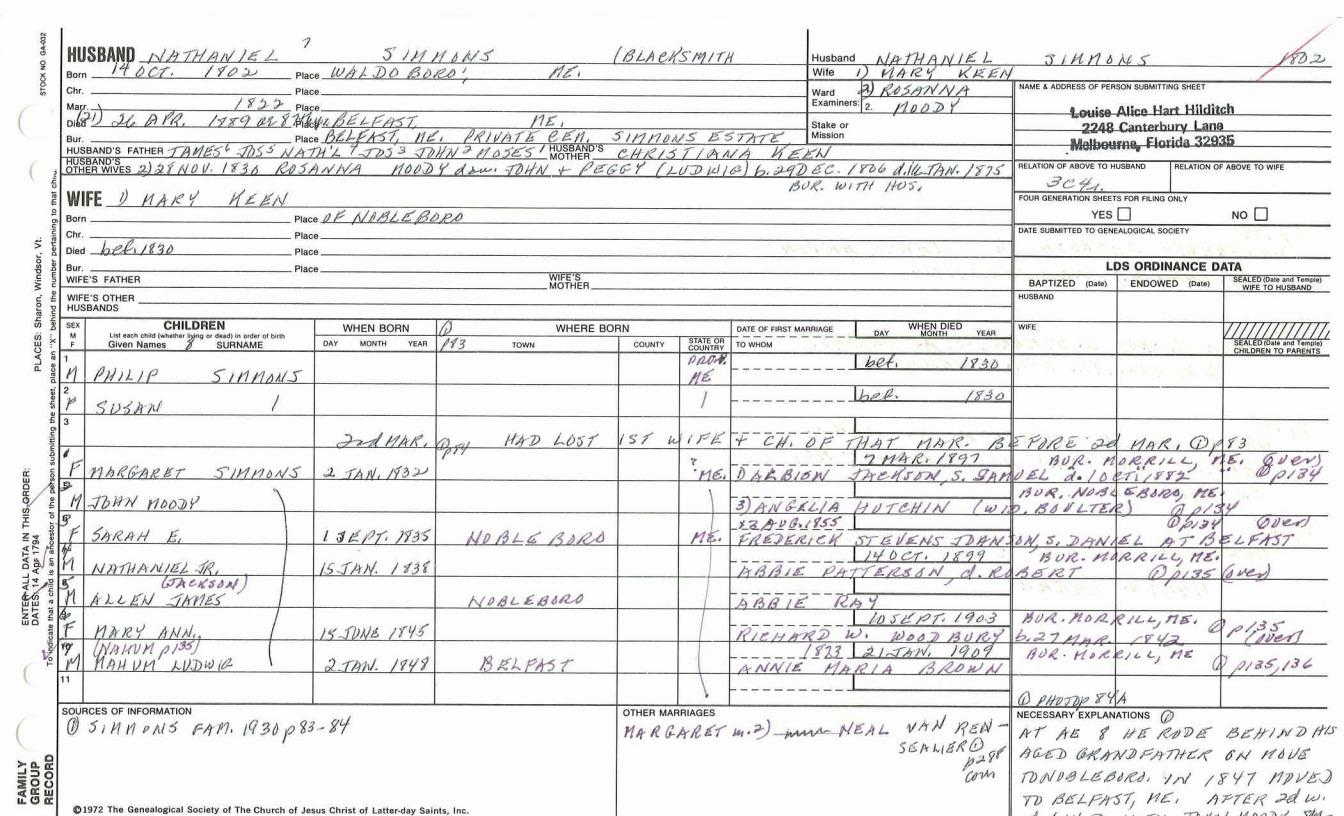 STOCK NO. GA-002
HUSBAND NATHANIEL 7 SIMMONS (BLACKSMITH
Born 14 OCT. 1802 Place WALDOBORO, ME.
Chr. Place
Marr. 1822 Place
Died (21) 26 APR. 1889 OR 8 Place BELFAST, ME.
Bur. Place BELFAST, ME. PRIVATE CEM. SIMMONS ESTATE
HUSBAND'S FATHER JAMES6 JOS5 NATH'L4 JOS3 JOHN2 MOSES1 HUSBAND'S MOTHER CHRISTIANA KEEN
HUSBAND'S OTHER WIVES 2) 28 NOV. 1830 ROSANNA MOODY dau. JOHN + PEGGY (LUDWIG) b. 29 DEC. 1806 d. 16 JAN. 1875
BUR. WITH HUS.
WIFE 1) MARY KEEN
Born Place OF NOBLEBORO
Chr. Place
Died bef. 1830 Place
Bur. Place
WIFE'S FATHER WIFE'S MOTHER
WIFE'S OTHER HUSBANDS
Husband NATHANIEL SIMMONS 1802
Wife 1) MARY KEEN
Ward 2) ROSANNA
Examiners: 2. MOODY
Stake or Mission
NAME & ADDRESS OF PERSON SUBMITTING SHEET
Louise Alice Hart Hilditch
2248 Canterbury Lane
Melbourne, Florida 32935
RELATION OF ABOVE TO HUSBAND RELATION OF ABOVE TO WIFE
3C4r.
FOUR GENERATION SHEETS FOR FILING ONLY
YES NO
DATE SUBMITTED TO GENEALOGICAL SOCIETY
LDS ORDINANCE DATA
BAPTIZED (Date) ENDOWED (Date) SEALED (Date and Temple) WIFE TO HUSBAND
HUSBAND
WIFE
SEALED (Date and Temple) CHILDREN TO PARENTS
SEX M F CHILDREN
List each child (whether living or dead) in order of birth
Given Names 8 SURNAME
WHEN BORN
DAY MONTH YEAR
① p83 WHERE BORN
TOWN COUNTY STATE OR COUNTRY
DATE OF FIRST MARRIAGE
TO WHOM
WHEN DIED
DAY MONTH YEAR
1 M PHILIP SIMMONS PROB. ME bef. 1830
2 F SUSAN bef. 1830
3
2nd MAR. ① p84 HAD LOST 1ST WIFE + CH. OF THAT MAR. BEFORE 2d MAR. ① p83
F MARGARET SIMMONS 2 JAN. 1832 ? ME. 7 MAR. 1897 BUR. MORRILL, ME. (over)
DARBION JACKSON, S. SAMUEL d. 1 OCT. 1882 ① p134
M JOHN MOODY BUR. NOBLEBORO, ME.
3) ANGELIA HUTCHIN (WID. BOULTER) ① p134
F SARAH E. 1 SEPT. 1835 NOBLEBORO ME. 22 AUG. 1855 ① p134 (over)
FREDERICK STEVENS JOANSON, S. DANIEL AT BELFAST
M NATHANIEL JR. 15 JAN. 1838 14 OCT. 1899 BUR. MORRILL, ME.
ABBIE PATTERSON, d. ROBERT ① p135 (over)
(JACKSON)
M ALLEN JAMES NOBLEBORO ABBIE RAY
F MARY ANN 15 JUNE 1845 10 SEPT. 1903 BUR. MORRILL, ME. ① p135
RICHARD W. WOODBURY b. 27 MAR. 1842 (over)
(NAHUM p135)
M MAHUM LUDWIG 2 JAN. 1848 BELFAST 1873 21 JAN. 1909 BUR. MORRILL, ME
ANNIE MARIA BROWN ① p135,136
11
① PHOTO p 84A
SOURCES OF INFORMATION
① SIMMONS FAM. 1930 p83-84
OTHER MARRIAGES
MARGARET m. 2) NEAL VAN REN-
SEALIER ①
p298
corr
NECESSARY EXPLANATIONS ①
AT AE 8 HE RODE BEHIND HIS
AGED GRANDFATHER ON MOVE
TO NOBLEBORO. IN 1847 MOVED
TO BELFAST, ME. AFTER 2d W.
©1972 The Genealogical Society of The Church of Jesus Christ of Latter-day Saints, Inc.
FAMILY
GROUP
RECORD
ENTER ALL DATA IN THIS ORDER:
DATES: 14 Apr 1794
PLACES: Sharon, Windsor, Vt.
To indicate that a child is an ancestor of the person submitting the sheet, place an "X" behind the number pertaining to that